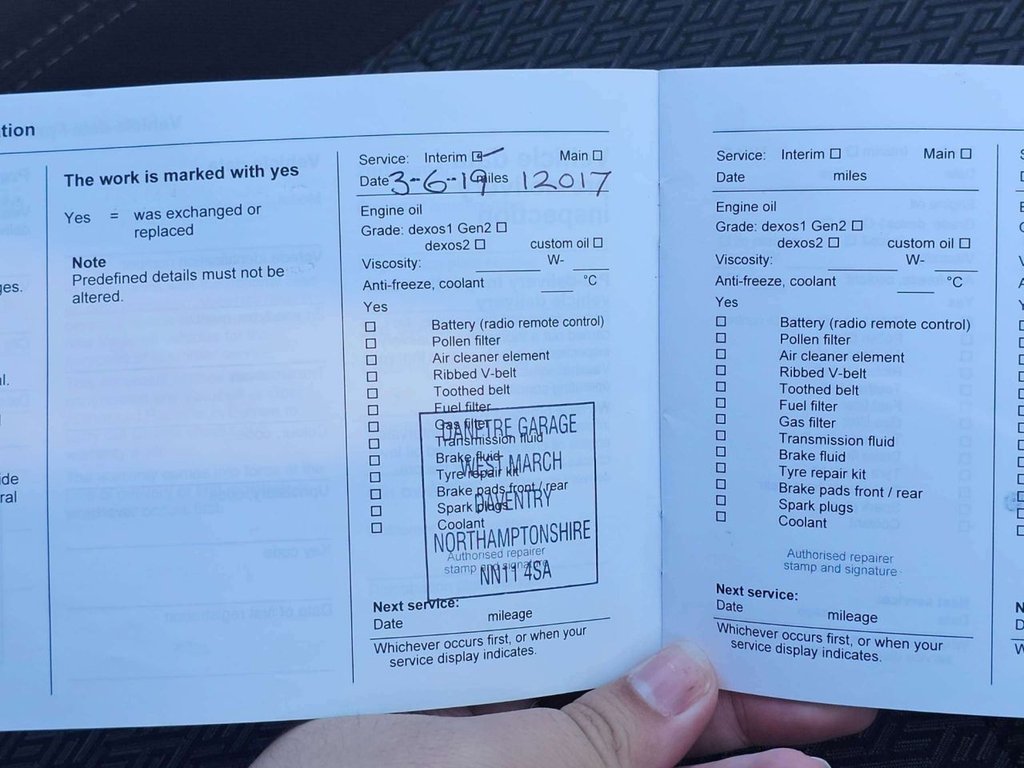 tion
The work is marked with yes
Yes = was exchanged or
replaced
Note
Predefined details must not be
altered.
ges.
al.
ide
ral
Service: Interim Main
Date 3-6-19 miles 12017
Engine oil
Grade: dexos1 Gen2
dexos2 custom oil
Viscosity: W-
Anti-freeze, coolant °C
Yes
Battery (radio remote control)
Pollen filter
Air cleaner element
Ribbed V-belt
Toothed belt
Fuel filter
Gas filter
Transmission fluid
Brake fluid
Tyre repair kit
Brake pads front / rear
Spark plugs
Coolant
Authorised repairer
stamp and signature
GARAGE
WEST MARCH
DAVENTRY
NORTHAMPTONSHIRE
NN11 4SA
Next service:
Date mileage
Whichever occurs first, or when your
service display indicates.
Service: Interim Main
Date miles
Engine oil
Grade: dexos1 Gen2
dexos2 custom oil
Viscosity: W-
Anti-freeze, coolant °C
Yes
Battery (radio remote control)
Pollen filter
Air cleaner element
Ribbed V-belt
Toothed belt
Fuel filter
Gas filter
Transmission fluid
Brake fluid
Tyre repair kit
Brake pads front / rear
Spark plugs
Coolant
Authorised repairer
stamp and signature
Next service:
Date mileage
Whichever occurs first, or when your
service display indicates.